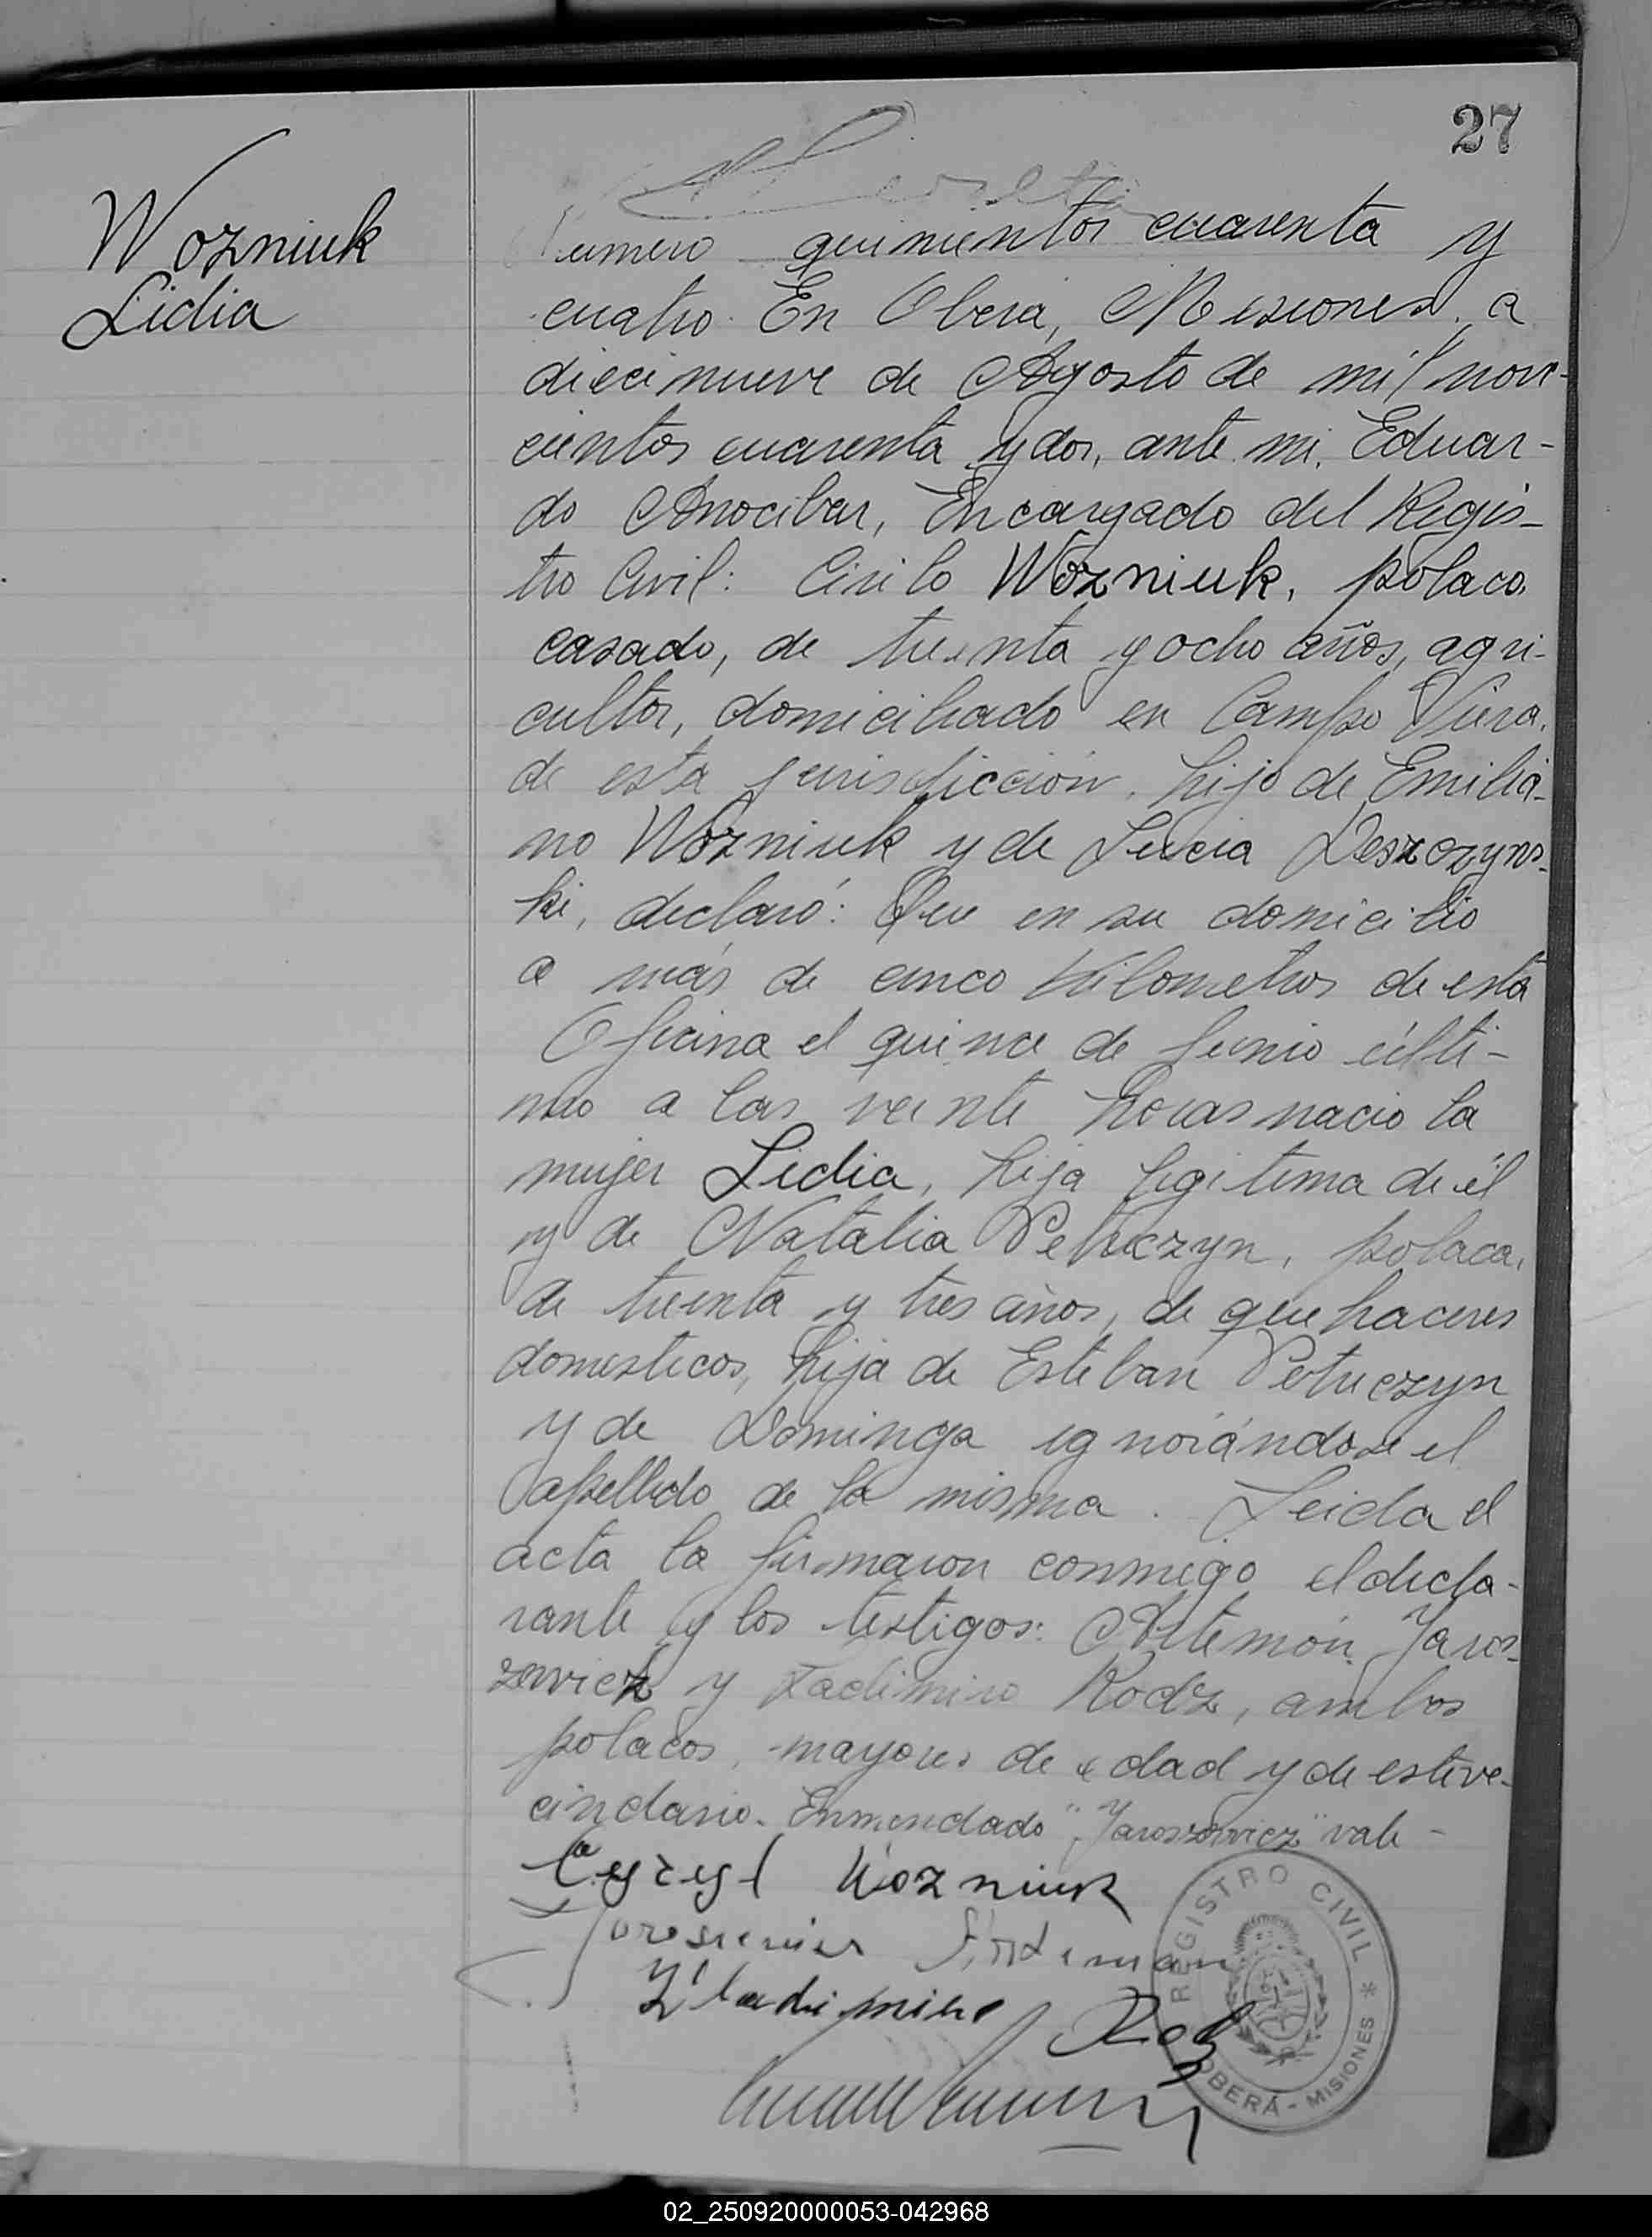 27
Wozniuk
Lidia
Numero quinientos cuarenta y
cuatro. En Oberá, Misiones, a
diecinueve de Agosto de mil nove-
cientos cuarenta y dos, ante mi, Eduar-
do Anocibar, Encargado del Regis-
tro Civil: Cirilo Wozniuk, polaco,
casado, de treinta y ocho años, agri-
cultor, domiciliado en Campo Viera,
de esta jurisdicción, hijo de Emilia-
no Wozniuk y de Lucia Deszczyns-
ki, declaró: Que en su domicilio
a más de cinco kilometros de esta
Oficina el quince de Junio últi-
mo a las veinte horas nacio la
mujer Lidia, hija legitima de él
y de Natalia Petruczyn, polaca,
de treinta y tres años, de quehaceres
domesticos, hija de Esteban Petruczyn
y de Dominga ignorándose el
apellido de la misma. Leida el
acta la firmaron conmigo el decla-
rante y los testigos: Artemón Yaros-
zewicz y Vladimiro Rodz, ambos
polacos, mayores de edad y de este ve-
cindario. Enmendado "Yaroszewicz" vale-
Cyryl Wozniuk
Wladimiro
REGISTRO CIVIL
OBERÁ - MISIONES *
02_250920000053-042968